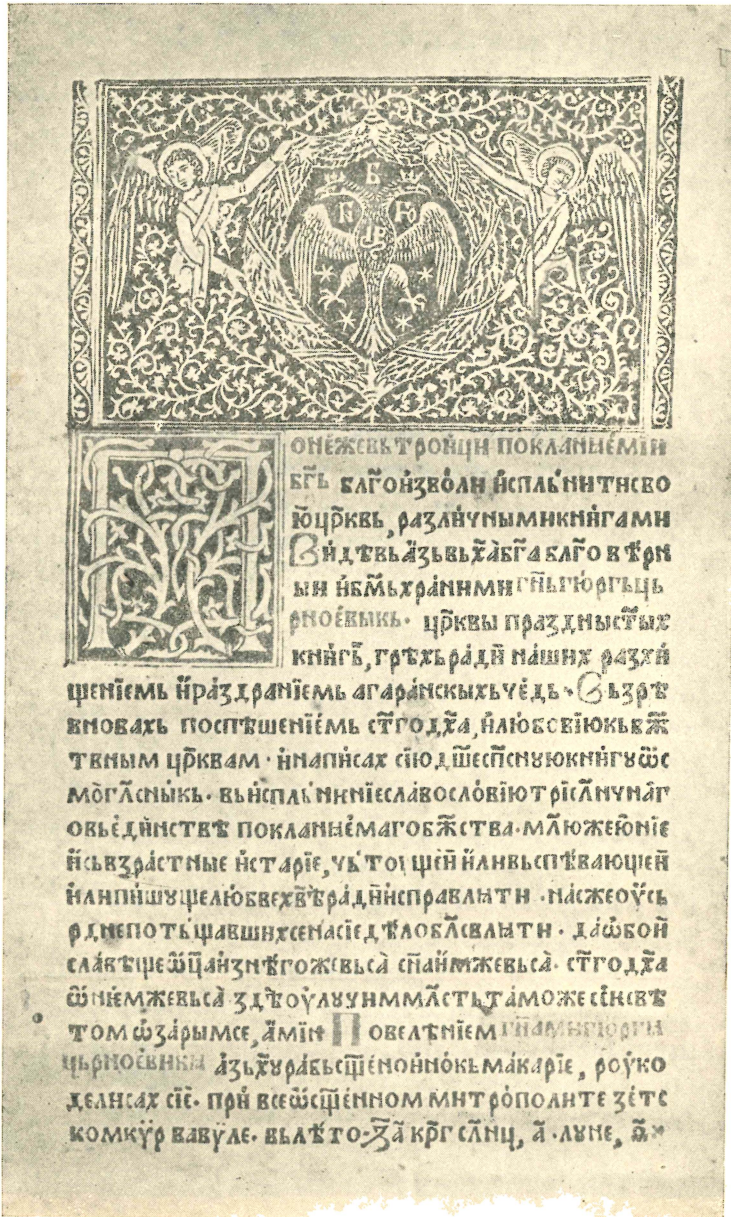 Б
П ГЮ
ѠНЕ́ЖЄВЬТРОЙЦИ ПОКЛАНꙖЄ́МІИ
БГ҃Ь БЛГ҃ОИЗВО́ЛИ И҆СПЛЬ́НИТИСВО
Ю҆ЦР҃КВЬ, РАЗЛИ́ЧНЫМИКНИ́ГАМИ
ВИ́ДѢВЬА҆ЗЬВЬХА҃БГ҃А БЛГ҃ОВѢ́РН
ЫИ И҆БМ҃ЬХРАНИ́МИ ГН҃ЬГЮ́РГЬЦЬ
РНОЄ́ВЫКЬ· ЦР҃КВЫ ПРАЗДНЫСТ҃ЫХ
КНИ́ГЬ, ГРѢ́ХЬРА́ДИ НА́ШИХ РАЗХЫ
ЩЕНІ́ЕМЬ И҆РА́ЗДРАНІ́ЕМЬ АГАРА́НСКЫХЬЧЄ́ДЬ· ВЬЗРЕ
ВНОВАХЬ ПОСПѢШЕНІ́ЄМЬ СТ҃ГОДХ҃А, И҆ЛЮ́БОВІ́ЮКЬБЖ҃
ТВНЫМ ЦР҃КВАМ· И҆НАПИ́САХ СІ́ЮДШ҃ЕСПС҃НꙊЮКНИ́ГꙊѾС
МОГЛС҃НЫКЬ· ВЬИ҆СПЛЬ́НІ́НІЕСЛАВОСЛО́ВІЮТРІСЛ҃НЧНАГ
ОВЬЄ́ДИ́НСТВѢ ПОКЛАНꙖЄ́МАГОБЖ҃СТВА·МЛ҃ЮЖЕЮ҆НІЕ
И҆СЬВЗРА́СТНЫЕ И҆СТАРІЕ, ЧЬТОУЩЕИ И҆ЛИВЬСПѢВАЮЩЕИ
И҆ЛИПИ́ШꙊЩЕЛЮ́БВЕХВ҃ѢРА́ДИИ҆СПРАВЛꙖТИ ·НА́СЖЕОУ҆СЬ
РДНЕПОТЬЩАВШИХСЕНАСІЕДѢ́ЛОБЛС҃ВЛꙖТИ· ДАѠ҆БОИ
СЛА́ВѢЩЕѾЦ҃АИ҆ЗНѢ́ГОЖЄВЬСА̀ СН҃АИ҆МЖЕВЬСА̀· СТ҃ГОДХ҃А
Ѡ҆НЕ́МЖЕВЬСА̀ ЗДѢОУ҆ЛꙊЧИММЛ҃СТЬ, ТА́МОЖЕСІ́НСВѢ
ТОМѠ҆ЗА́РЫМСЕ, А҆МІ́Н ПОВЕЛѢ́НІЕМ ГН҃АМИГЮ́РГА
ЦЬРНОЄ́ВИКА А҆ЗЬХУ҃РА́БЬСЩ҃ЕНОИ҆НО́КЬМАКА́РІЕ, РОУ́КО
ДЕЛИСАХ СІЄ̀· ПРИ́ ВСЕѠ҆СЩ҃Е́ННОМ МИТРО́ПОЛИТЕ ЗЕ́ТС
КОМКУ҃Р ВАВУ҄ЛЕ· ВЬЛѢ́ТО·҂ЗА҃ КРГ҃ СЛ҃НЦ, А҃ ·ЛꙊНЕ,